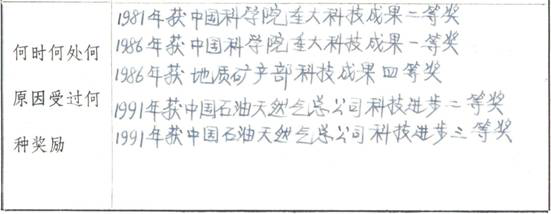 何时何处何
原因受过何
种奖励
1981年获中国科学院重大科技成果二等奖
1986年获中国科学院重大科技成果一等奖
1986年获地质矿产部科技成果四等奖
1991年获中国石油天然气总公司科技进步二等奖
1991年获中国石油天然气总公司科技进步三等奖